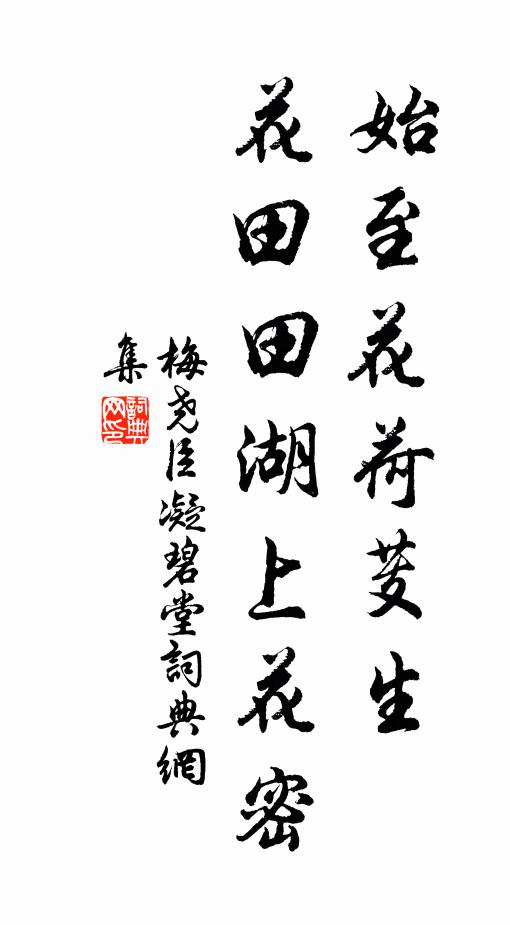 始至花荷芰生
花田田湖上花密
梅尧臣凝碧堂詞典網
集
詞典
网印